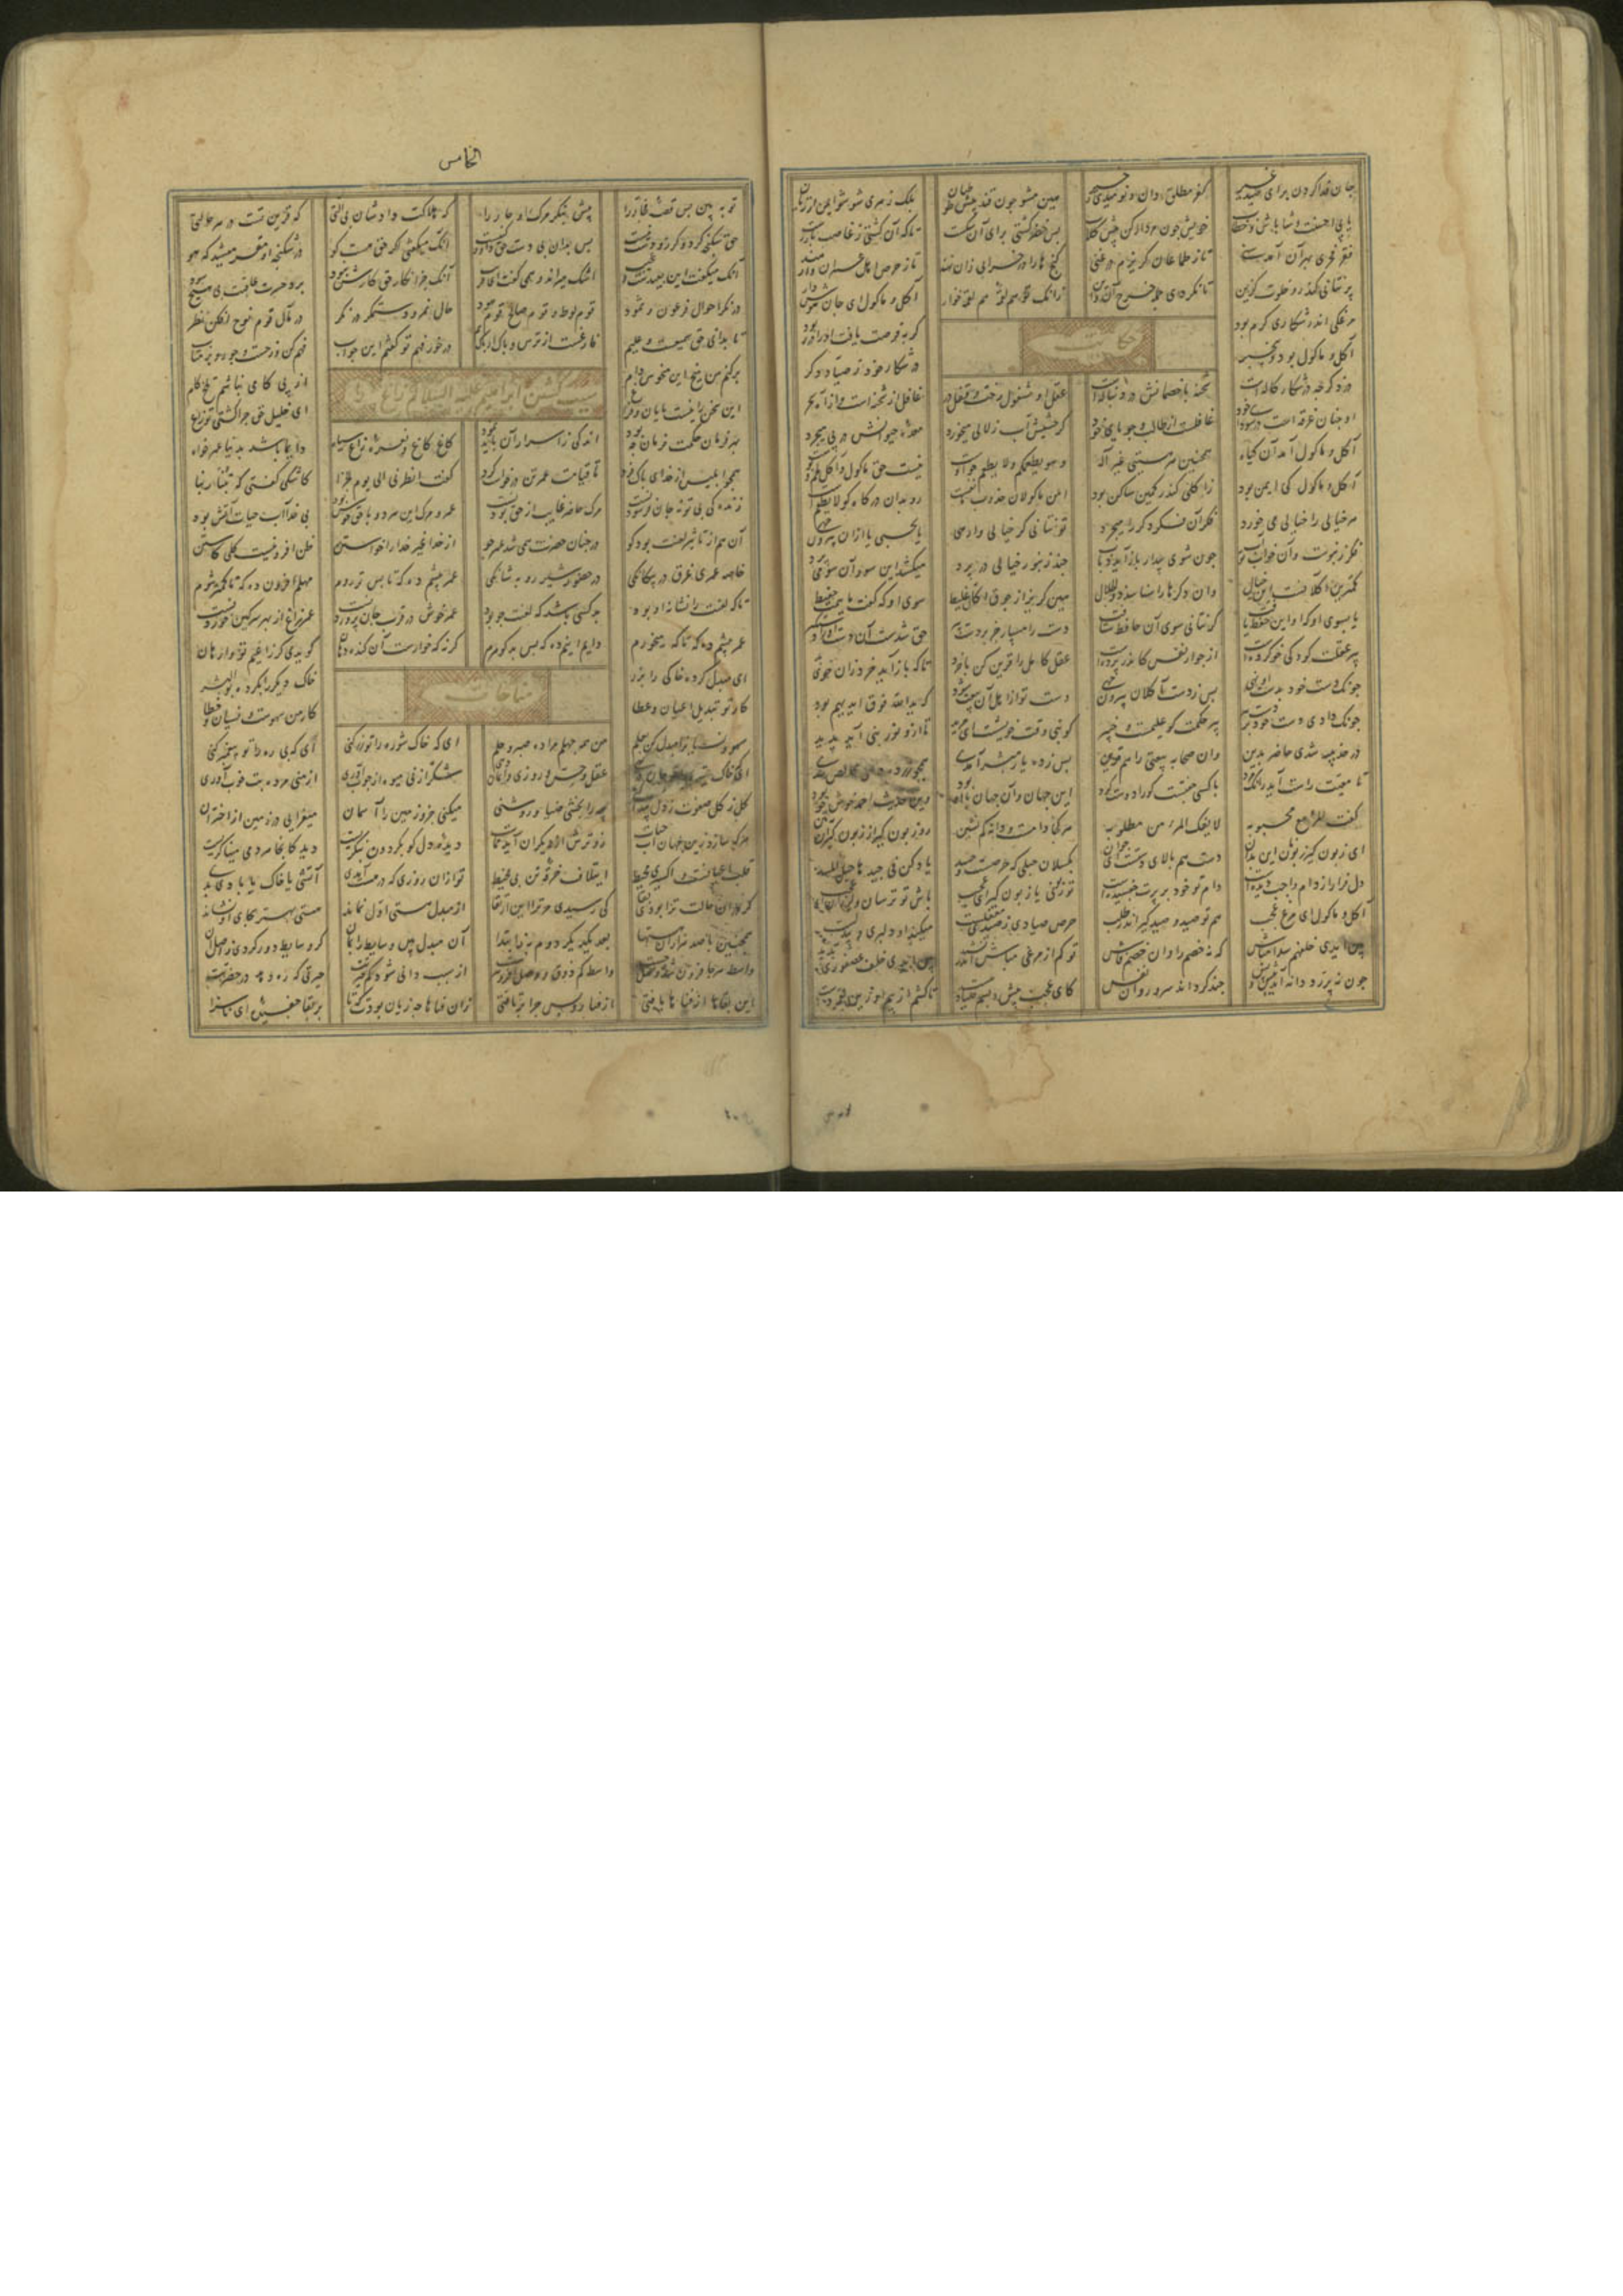 الخامس
جان فدا کردن برای صید غیر کفر مطلق دان و نومیدی ز خیر هین مشو چون قند پیش طوطیان بلک زهری شو شو ایمن از زیان
یا پی احسنت و شاباش و خطاب خویش چون مردار کن پیش کلاب پس خضر کشتی برای آن شکست تا که آن کشتی ز غاصب باز رست
فقر فخری بهر آن آمد سنی تا ز طماعان گریزم در غنی گنج ها را در خرابی زان نهند تا ز حرص اهل عمران وارهند
پر نتانی کند رو خلوت گزین تا نگردی جمله خرج آن و این زانک تو هم لقمه هم لقمه خوار آکل و ماکولی ای جان هوش دار
مرغکی اندر شکار کرم بود گربه فرصت یافت او را در ربود
آکل و ماکول بود و بیخبر در شکار خود ز صیاد دگر
حکایت
دزد گرچه در شکار کاله است شحنه با خصمانش در دنباله است عقل او مشغول رخت و قفل و در غافل از شحنه است و از آه سحر
او چنان غرقه است در سودای خود غافلست از طالب و جویای خود گر حشیش آب زلالی میخورد معده حیوانش در پی میچرد
آکل و ماکول آمد آن گیاه همچنین هر هستیی غیر اله و هو یطعمکم ولا یطعم چو اوست نیست حق ماکول و آکل لحم و پوست
آکل و ماکول کی ایمن بود زاکلی کندر کمین ساکن بود امن ماکولان جذوب ماتمست رو بدان درگاه کو لا یطعم است
هر خیالی را خیالی می خورد فکر آن فکر دگر را میچرد تو نتانی کز خیالی وارهی یا بخسپی تا ازان بیرون جهی
فکر زنبورست وآن خواب تو آب چون شوی بیدار باز آید ذباب چند زنبور خیالی در پرد میکشد این سو و آن سو می برد
کمترین آکلانست این خیال وان دگرها را شناسد ذوالجلال هین گریز از جوق اکال غلیظ سوی او که گفت ماییمت حفیظ
یا بسوی او که او این حفظ یافت گر نتانی سوی آن حافظ شتافت دست را مسپار جز در دست پیر حق شدست آن دست او را دستگیر
پیر عقلت کودکی خو کرده است از جوار نفس کاندر پرده است عقل کامل را قرین کن با خرد تا که باز آید خرد زان خوی بد
چونک دست خود بدست او نهی پس ز دست آکلان بیرون جهی دست تو از اهل آن بیعت شود که یدالله فوق ایدیهم بود
چونک دادی دست خود در دست پیر پیر حکمت کو علیمست و خبیر کو نبی وقت خویشست ای مرید تا ازو نور نبی آید پدید
در حدیبیه شدی حاضر بدین وان صحابه بیعتی را هم قرین پس ز ده یار مبشر آمدی همچو زر ده دهی خالص شدی
تا معیت راست آید زانک مرد با کسی جفتست کورا دوست کرد این جهان وآن جهان با او بود وین حدیث احمد خوش خو بود
گفت المرء مع محبوبه لا یفک المرء من مطلوبه هر کجا دامست و دانه کم نشین رو زبون گیرا زبون گیران ببین
ای زبون گیر زبونان این بدان دست هم بالای دستست ای جوان بگسلان حبلی که حرصست و حسد یاد کن فی جیدها حبل مسد
دل فرار از دام واجب دیده است دام تو خود بر پرت چفسیده است تو زبونی یا زبون گیر ای عجب باش تو ترسان و لرزان
آکل و ماکول ای مرغ عجب هم تو صید و صید گیر اندر طلب حرص صیادی ز صیدی مغفلست میکند او دلبری و بیدلست
بین ایدی خلفهم سدا مباش که نه خصم را وان خصم فاش تو کم از مرغی مباش اندر نشید بین ایدی خلف عصفوری بدید
چون به نزد دانه آید پیش و پس چند گرداند سر و رو آن نفس کای عجب پیش و پسم صیاد هست تا کشم از بیم او زین لقمه دست
تو ببین پس قصه فجار را پیش بنگر مرگ یار و جار را که هلاکت داد شان بی آلتی که قرین تست در هر حالتی
حق شکنجه کرد و گرز و دست نیست پس بدان بی دست حق آنک میگفتی اگر حق هست کو در شکنجه او مقر میشد که هو
آنک میگفت این بعیدست و عجیب اشک میراند و همی گفت ای قریب آنک جز انکار حق کارش نبود برد حسرت عاقبت بی هیچ سود
در نگر احوال فرعون و ثمود قوم لوط و قوم صالح قوم هود حال نمرود ستمگر در نگر در مآل قوم نوح افکن نظر
تا بدانی حق سمیعست و علیم فارغست از ترس و باک در خور فهم تو گفتم این جواب فهم کن وز جست و جو رو بر متاب
بر کنم من میخ این منحوس دام از پی کامی نباشم تلخ کام
سبب کشتن ابراهیم علیه السلام زاغ را
این سخن را نیست پایان و فراغ ای خلیل حق چرا کشتی تو زاغ
بهر فرمان حکمت فرمان چه بود اندکی ز اسرار آن باید نمود کاغ کاغ و نعره زاغ سیاه دایما باشد بدنیا عمر خواه
همچو ابلیس از خدای پاک فرد تا قیامت عمر تن درخواست کرد گفت انظرنی الی یوم الجزا کاشکی گفتی که تبنا ربنا
زندگی بی توبه جان فرسودنست مرگ حاضر غایب از حق بودنست عمر و مرگ این هر دو با حق خوش بود بی خدا آب حیات آتش بود
آن هم از تاثیر لعنت بود کو در چنان حضرت همی شد عمر جو از خدا غیر خدا را خواستن ظن افزونیست کلی کاستن
خاصه عمری غرق در بیگانگی در حضور شیر روبه شانگی عمر بیشم ده که تا پس تر روم مهلم افزون ده که تا کمتر شوم
تا که لعنت را نشانه او بود بد کسی باشد که لعنت جو بود عمر خوش در قرب جان پروردنست عمر زاغ از بهر سرگین خوردنست
عمر بیشم ده که تا گه میخورم دایم اینم ده که بس بد گوهرم گر نه گه خوارست آن گنده دهان گویدی کز زاغیم تو وارهان
ای مبدل کرده خاکی را بزر خاک دیگر را بکرده بوالبشر
مناجات
کار تو تبدیل اعیان و عطا کار من سهوست و نسیان و خطا
سهو و نسیان را مبدل کن بعلم من همه جهلم مرا ده صبر و حلم ای که خاک شوره را تو کنی ای که بی ره را تو پیغمبر کنی
ای که خاک تیره را تو جان دهی عقل و حس و روزی و ایمان دهی شکر از نی میوه از چوب آوری از منی مرده بت خوب آوری
گل ز گل صفوت ز دل پیدا کنی پیه را بخشی ضیا و روشنی میکنی جزو زمین را آسمان میفزایی در زمین از اختران
هر که سازد زین جهان آب حیات زوترش از دیگران آید ممات دیده دل کو بگردون بنگریست دید کانجا هر دمی میناگریست
قلب اعیانست و اکسیری محیط ایتلاف خرقه تن بی مخیط تو ازان روزی که در هست آمدی آتشی یا خاک یا بادی بدی
گر بران حالت ترا بودی بقا کی رسیدی مر ترا این ارتقا از مبدل هستی اول نماند هستی بهتر بجای او نشاند
همچنین تا صد هزاران هستها بعد یکدیگر دوم به ز ابتدا آن مبدل بین وسایط را بمان کز وسایط دور گردی ز اصل آن
واسطه هر جا فزون شد وصل جست واسطه کم ذوق وصل افزونترست از سبب دانی شود کم حیرتت حیرتی که ره دهد در حضرتت
این بقاها از فناها یافتی از فنا پس رو چرا برتافتی زان فناها چه زیان بودت که تا بر بقا چفسیده ای